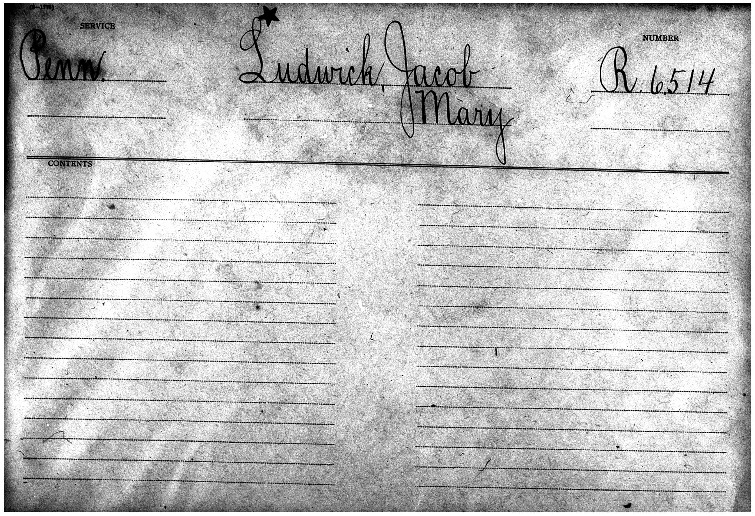 SERVICE
NUMBER
Penn.
Ludwick, Jacob
R. 6514
Mary
CONTENTS